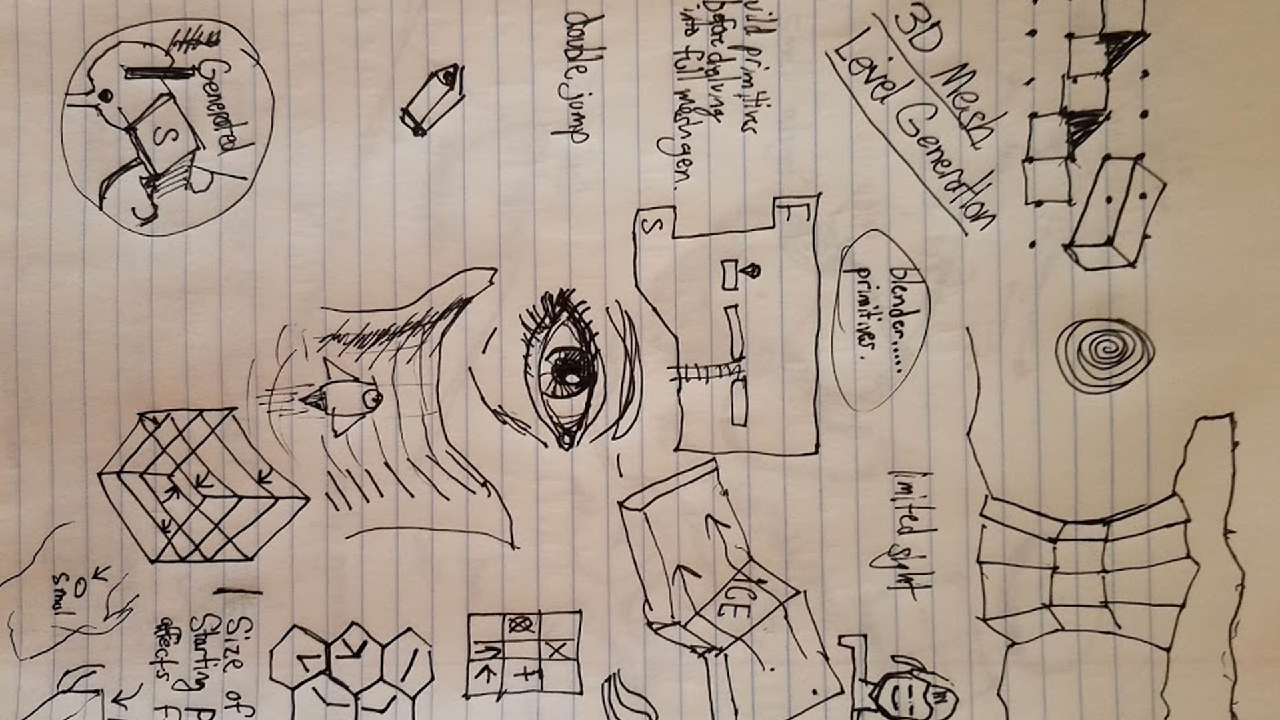 3D Mesh
Level Generation
uild primitives
before
into full meshgen.
double jump
Generated
S
E
S
blender.....
primitives.
limited sight
ICE
smol
Size of
Starting p
affects f
X